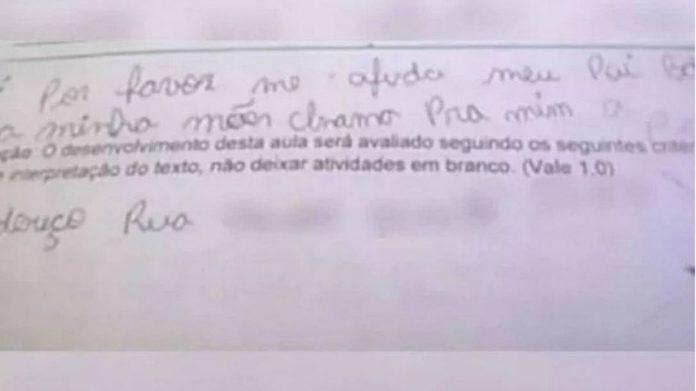 Por favor me ajuda meu Pai
a minha mãen chrama Pra mim a
ção: O desenvolvimento desta aula será avaliado seguindo os seguintes criter
interpretação do texto, não deixar atividades em branco. (Vale 1.0)
Rua